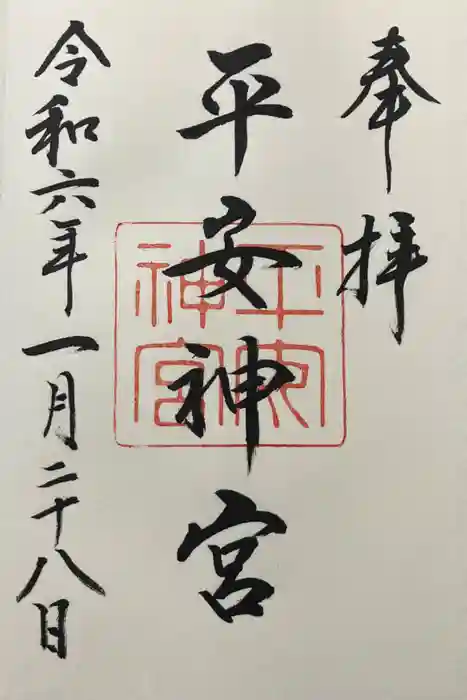 奉拝
平安神宮
平安
神宮
令和六年一月二十八日